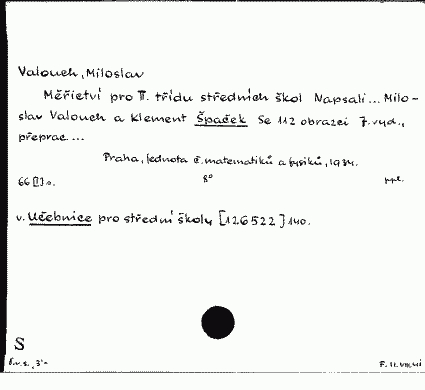 Valouch, Miloslav
Měřictví pro II. třídu středních škol Napsali... Milo-
slav Valouch a Klement Špaček Se 112 obrazci 7. vyd.,
přeprac...
Praha, Jednota č. matematiků a fysiků, 1934.
66 [I] s. 8° ppl.
v. Učebnice pro střední školy [126522] 140.
S